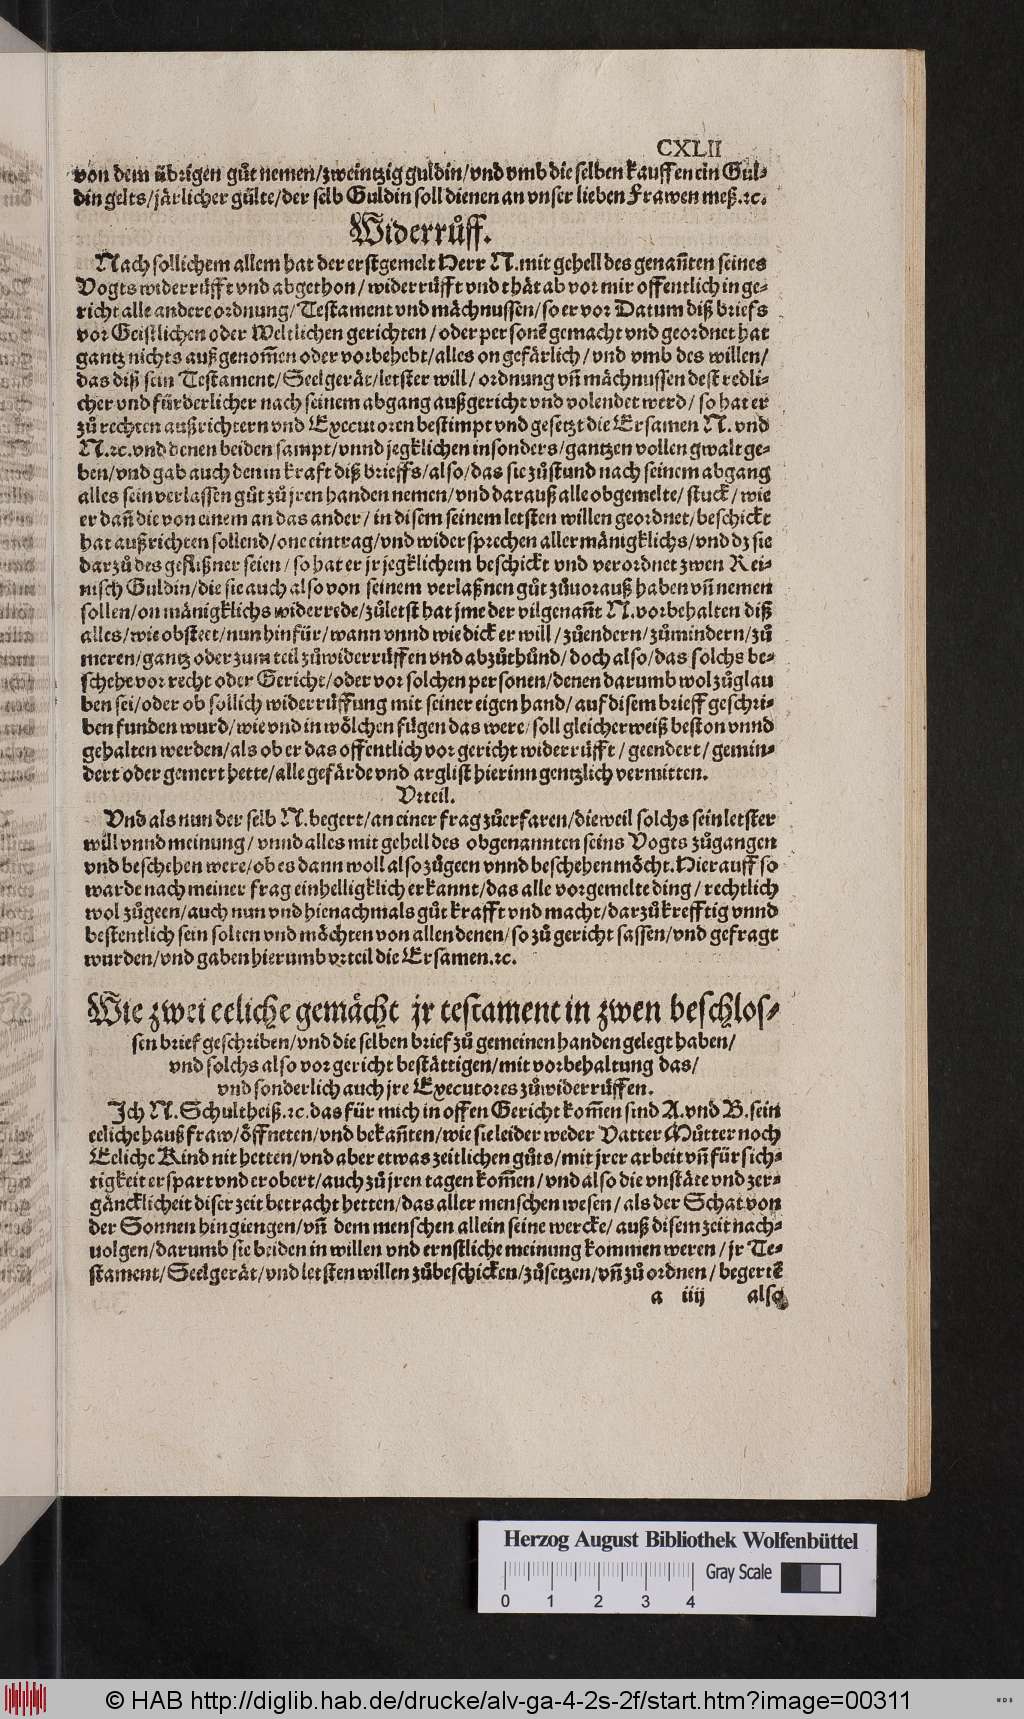 CXLII
von dem übrigen gůt nemen/zweintzig guldin/vnd vmb die selben kauffen ein Gul-
din gelts/järlicher gülte/der selb Guldin soll dienen an vnser lieben Frawen meß.ꝛc.
Widerrůff.
Nach sollichem allem hat der erstgemelt Herr N.mit gehell des genañten seines
Vogts widerrůfft vnd abgethon/widerrůfft vnd thåt ab vor mir offentlich in ge-
richt alle andere ordnung/Testament vnd måchnussen/so er vor Datum diß briefs
vor Geistlichen oder Weltlichen gerichten/oder personẽ gemacht vnd geordnet hat
gantz nichts außgenom̃en oder vorbehebt/alles on gefärlich/vnd vmb des willen/
das diß sein Testament/Seelgerät/letster will/ordnung vñ måchnussen dest redli-
cher vnd fürderlicher nach seinem abgang außgericht vnd volendet werd/so hat er
zů rechten außrichtern vnd Executoren bestimpt vnd gesetzt die Ersamen N. vnd
N.ꝛc.vnd denen beiden sampt/vnnd jegklichen insonders/gantzen vollen gwalt ge-
ben/vnd gab auch den in kraft diß brieffs/also/das sie zůstund nach seinem abgang
alles sein verlassen gůt zů jren handen nemen/vnd darauß alle obgemelte/stuck/wie
er dañ die von einem an das ander/in disem seinem letsten willen geordnet/beschickt
hat außrichten sollend/one eintrag/vnd widersprechen aller mänigklichs/vnd dz sie
darzů des geflißner seien/so hat er jr jegklichem beschickt vnd verordnet zwen Rei-
nisch Guldin/die sie auch also von seinem verlaßnen gůt zůuorauß haben vñ nemen
sollen/on mänigklichs widerrede/zůletst hat jme der vilgenañt N.vorbehalten diß
alles/wie obsteet/nun hinfür/wann vnnd wie dick er will/zůendern/zůmindern/zů
meren/gantz oder zum teil zůwiderrůffen vnd abzůthůnd/doch also/das solchs be-
schehe vor recht oder Gericht/oder vor solchen personen/denen darumb wol zůglau
ben sei/oder ob sollich widerrůffung mit seiner eigen hand/auf disem brieff geschri-
ben funden wurd/wie vnd in wölchen fůgen das were/soll gleicherweiß beston vnnd
gehalten werden/als ob er das offentlich vor gericht widerrůfft/geendert/gemin-
dert oder gemert hette/alle gefärde vnd arglist hierinn gentzlich vermitten.
Vrteil.
Vnd als nun der selb N.begert/an einer frag zůerfaren/dieweil solchs sein letster
will vnnd meinung/vnnd alles mit gehell des obgenannten seins Vogts zůgangen
vnd beschehen were/ob es dann woll also zůgeen vnnd beschehen möcht.Hierauff so
warde nach meiner frag einhelligklich erkannt/das alle vorgemelte ding/rechtlich
wol zůgeen/auch nun vnd hienachmals gůt krafft vnd macht/darzů krefftig vnnd
bestentlich sein solten vnd möchten von allen denen/so zů gericht sassen/vnd gefragt
wurden/vnd gaben hierumb vrteil die Ersamen.ꝛc.
Wie zwei eeliche gemächt jr testament in zwen beschlos-
sen brief geschriben/vnd die selben brief zů gemeinen handen gelegt haben/
vnd solchs also vor gericht bestättigen/mit vorbehaltung das/
vnd sonderlich auch jre Executores zůwiderrůffen.
Ich N.Schultheiß.ꝛc.das für mich in offen Gericht kom̃en sind A.vnd B.sein
eeliche haußfraw/öffneten/vnd bekañten/wie sie leider weder Vatter Můtter noch
Eeliche Kind nit hetten/vnd aber etwas zeitlichen gůts/mit jrer arbeit vñ fürsich-
tigkeit erspart vnd erobert/auch zů jren tagen kom̃en/vnd also die vnstäte vnd zer-
gäncklicheit diser zeit betracht hetten/das aller menschen wesen/als der Schat von
der Sonnen hin giengen/vñ dem menschen allein seine wercke/auß disem zeit nach-
uolgen/darumb sie beiden in willen vnd ernstliche meinung kommen weren/jr Te-
stament/Seelgerät/vnd letsten willen zůbeschicken/zůsetzen/vñ zů ordnen/begertẽ
a iiij also
Herzog August Bibliothek Wolfenbüttel
Gray Scale
0 1 2 3 4
© HAB http://diglib.hab.de/drucke/alv-ga-4-2s-2f/start.htm?image=00311